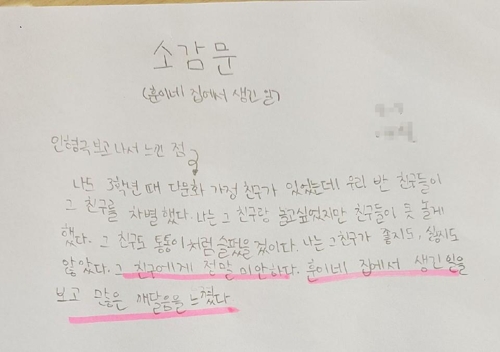 소감문
(훈이네 집에서 생긴 일)
인형극 보고 나서 느낀 점
나는 3학년 때 다문화 가정 친구가 있었는데 우리 반 친구들이
그 친구를 차별했다. 나는 그 친구랑 놀고싶었지만 친구들이 못 놀게
했다. 그 친구도 통통이처럼 슬펐을 것이다. 나는 그친구가 좋지도, 싫지도
않았다. 그 친구에게 정말 미안하다. 훈이네 집에서 생긴 일을
보고 많은 깨달음을 느꼈다